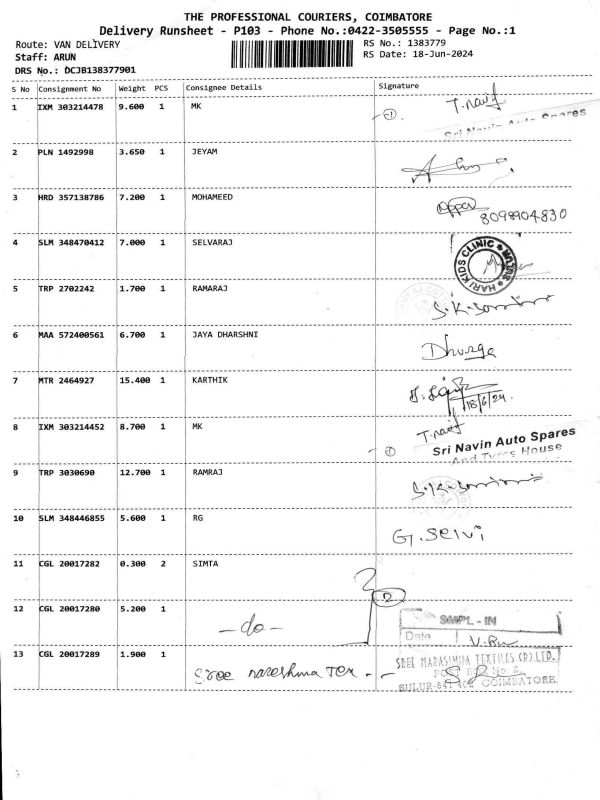 THE PROFESSIONAL COURIERS, COIMBATORE
Delivery Runsheet - P103 - Phone No.:0422-3505555 - Page No.:1
Route: VAN DELIVERY
RS No.: 1383779
Staff: ARUN
RS Date: 18-Jun-2024
DRS No.: DCJB138377901
S No Consignment No Weight PCS Consignee Details Signature
1 IXM 303214478 9.600 1 MK
Sri Navin Auto Spares
2 PLN 1492998 3.650 1 JEYAM
3 HRD 357138786 7.200 1 MOHAMEED
8098904830
4 SLM 348470412 7.000 1 SELVARAJ
HARI KIDS CLINIC
SULUR
5 TRP 2702242 1.700 1 RAMARAJ
6 MAA 572400561 6.700 1 JAYA DHARSHNI
Dhurga
7 MTR 2464927 15.400 1 KARTHIK
18/6/24.
8 IXM 303214452 8.700 1 MK
Sri Navin Auto Spares
And Tyres House
9 TRP 3030690 12.700 1 RAMRAJ
10 SLM 348446855 5.600 1 RG
G. Selvi
11 CGL 20017282 0.300 2 SIMTA
12 CGL 20017280 5.200 1
- do -
SMPL - IN
Date
13 CGL 20017289 1.900 1
Sree
SREE NARASIMHA TEXTILES (P) LTD.
SULUR-641 402 COIMBATORE